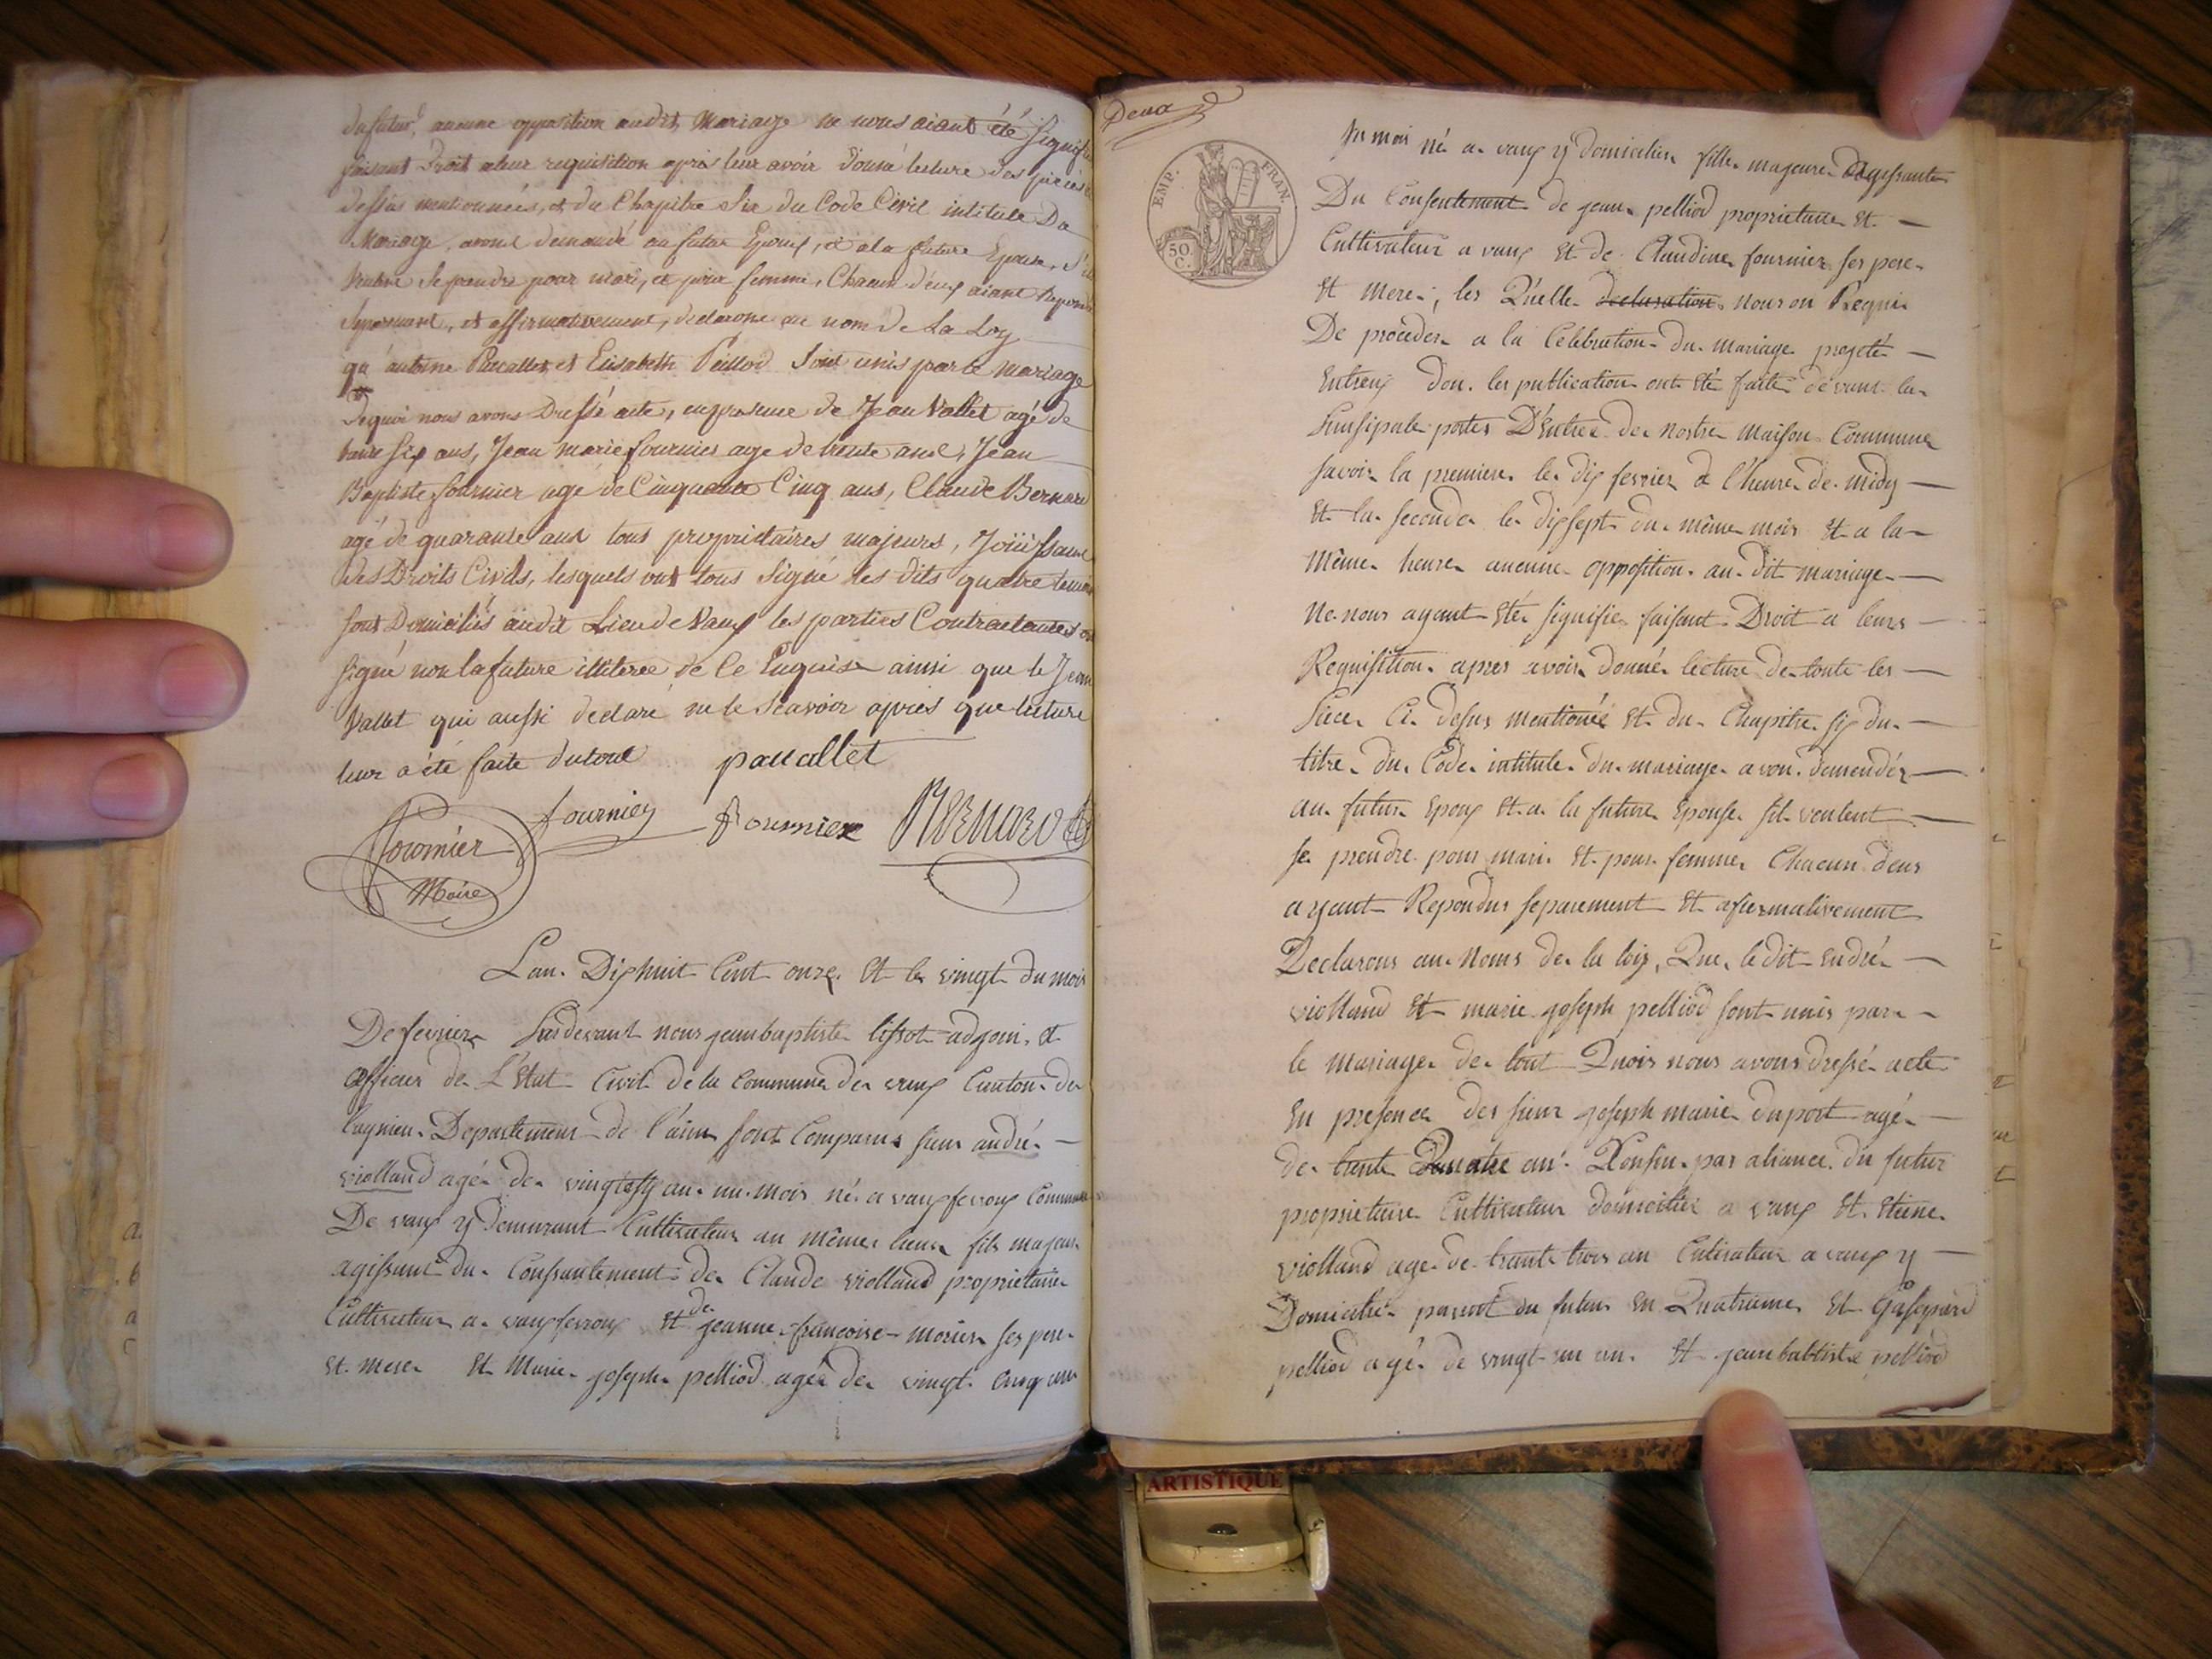 du futur, aucune opposition audit Mariage ne nous aiant été signifié
faisant Droit a leur requisition après leur avoir donné lecture des pièces
dessus mentionnées, et du Chapitre Six du Code Civil intitulé Du
Mariage, avons demandé au futur Epoux, et a la future Epouse, s'ils
veulent se prendre pour mari, et pour femme, Chacun d'eux aiant repondu
séparément, et affirmativement, declarons au nom de La Loy
qu'antoine Paccallet et Elisabeth Pelliod Sont unis par le mariage
Dequoi nous avons Dressé acte, en presence de Jean Vallet agé de
six ans, Jean marie fournier age de trente ans, Jean
Baptiste fournier agé de Cinquante Cinq ans, Claude Bernard
agé de quarante ans tous propriétaires majeurs, Joüissant
des Droits Civils, lesquels ont tous Signé les dits quatre temoins
sont Domiciliés audit Lieu de Vaux les parties Contractantes ont
signé non la future illiterée de Ce Enquise ainsi que le Jean
Vallet qui aussi declaré ne le Scavoir après que lecture
leur a été faite du tout paccallet
fournier fournier Bernard
fournier
Maire
Lan. Dixhuit Cent onze. Et le vingt du mois
De fevrier Pardevant nous jeanbaptiste lissot adjoin. et
officier de L'Etat Civil de la Commune de vaux Canton de
lagnieu. Departement de l'ain sont Comparus sieur andré
violland agé de vingtsix an. un mois né a vauxfevroux Commune
De vaux y demurant Cultivateur au même lieux fils majeur
agissant du Consentement de Claude violland proprietaire
Cultivateur a vauxfevroux Et de jeanne francoise morier ses pere
et mere Et Marie joseph pelliod agée de vingt cinq an
Deux
EMP. FRAN.
50 C.
un mois né a vaux y domicilier fille majeure agissante
Du Consentement de jean pelliod proprietaire Et
Cultivateur a vaux Et de Claudine fournier ses pere
Et mere, les Quelle declaration nous on Requis
De procéder a la Celebration du mariage projeté
Entreux don. les publication ont été faite devant la
Prinsipale portes D'Entrée de nostre Maison Commune
savoir la premiere le dix fevrier a l'heure de midy
Et la seconde le dixsept du même mois Et a la
Même heure aucune opposition au dit mariage
Ne nous ayant été signifie faisant Droit a leurs
Requisition apres avoir donné lecture de toute les
Piece Ci desus mentionée Et du Chapitre six du
titre du Code intitule du mariage avon demender
au futur Epoux Et a la future Epouse sil veulent
se prendre pour mari Et pour femme Chacun deux
ayant Repondus separement Et afirmativement
Declarons au Noms de la loix, Que ledit andré
violland Et marie joseph pelliod sont unis par
le mariage de tout Quois nous avons dressé acte
En presence des sieur joseph marie duport agé
de trante Quatre an. Cousin par aliance du futur
proprietaire Cultivateur domicilié a vaux Et Etiene
violland agé de trante trois an Cultivateur a vaux y
Domicilié parent du futur En Quatrieme Et Gaspard
pelliod agé de vingt un an. Et jeanbabtiste pelliod
ARTISTIQUE